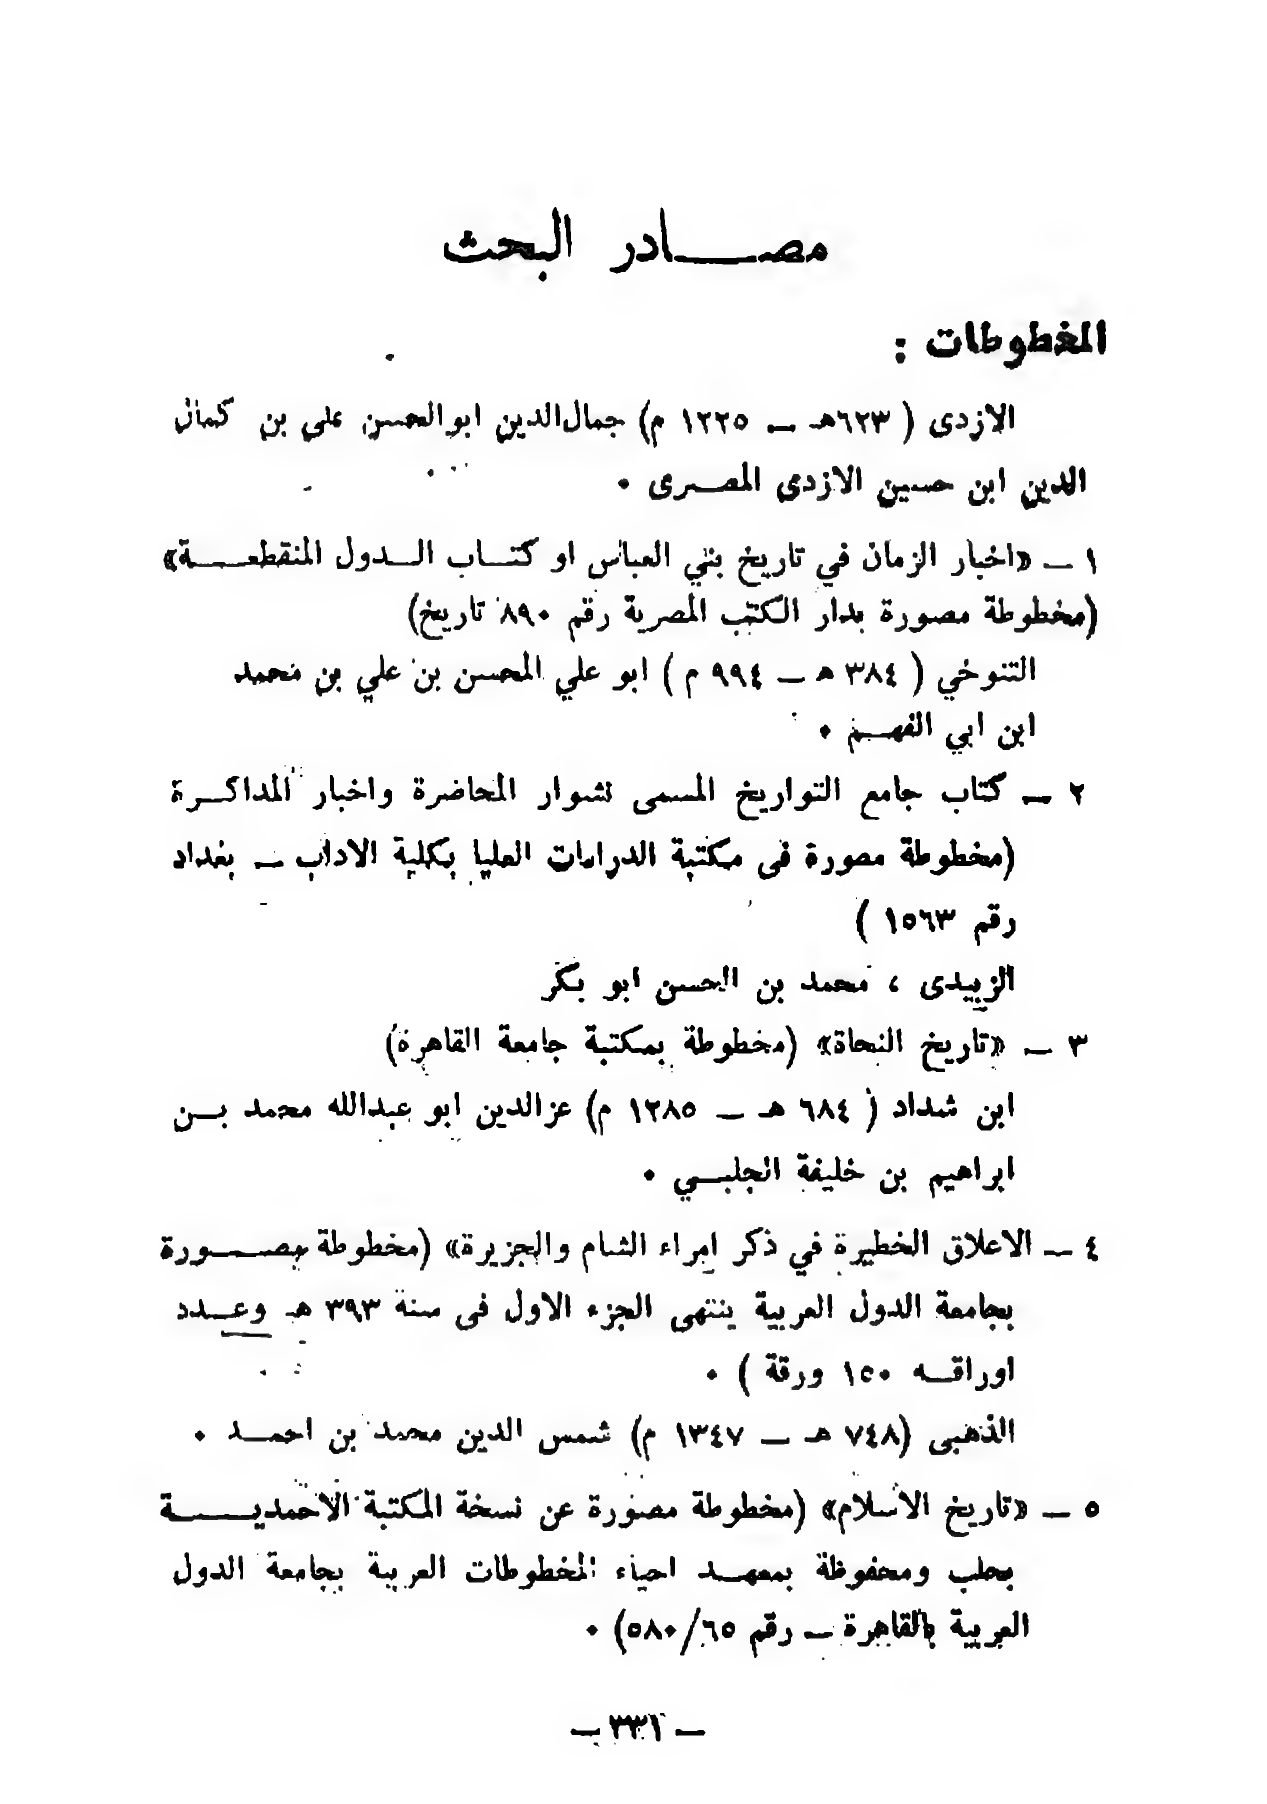 مصادر البحث
المخطوطات :
الازدى ( ٦٢٣هـ – ١٢٢٥ م) جمال‌الدين ابوالحسن علي بن كمال
الدين ابن حسين الازدي المصرى ٠
١ – «اخبار الزمان في تاريخ بني العباس او كتاب الدول المنقطعة»
(مخطوطة مصورة بدار الكتب المصرية رقم ٨٩٠ تاريخ)
التنوخي ( ٣٨٤ هـ – ٩٩٤ م ) ابو علي المحسن بن علي بن محمد
ابن ابي الفهم ٠
٢ – كتاب جامع التواريخ المسمى نشوار المحاضرة واخبار المداكرة
(مخطوطة مصورة فى مكتبة الدراسات العليا بكلية الاداب – بغداد
رقم ١٥٦٣ )
الزبيدى ، محمد بن الحسن ابو بكر
٣ – «تاريخ النحاة» (مخطوطة بمكتبة جامعة القاهرة)
ابن شداد ( ٦٨٤ هـ – ١٢٨٥ م) عزالدين ابو عبدالله محمد بن
ابراهيم بن خليفة الجلبي ٠
٤ – الاعلاق الخطيرة في ذكر امراء الشام والجزيرة» (مخطوطة مصورة
بجامعة الدول العربية ينتهى الجزء الاول فى سنة ٣٩٣ هـ وعدد
اوراقه ١٥٠ ورقة ) ٠
الذهبى (٧٤٨ هـ – ١٣٤٧ م) شمس الدين محمد بن احمد ٠
٥ – «تاريخ الاسلام» (مخطوطة مصورة عن نسخة المكتبة الاحمدية
بحلب ومحفوظة بمعهد احياء المخطوطات العربية بجامعة الدول
العربية بالقاهرة – رقم ٥٨٠/٦٥) ٠
– ٣٣١ –